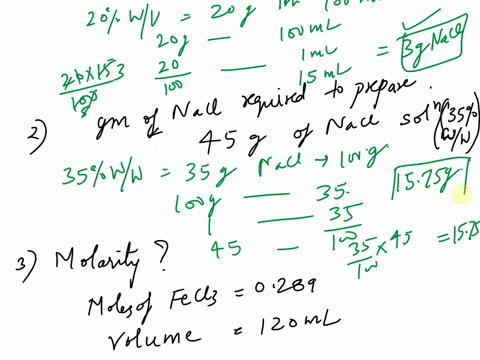 20% W/V = 20g in 100 mL
20g — 100mL
20/100 — 1mL
20×15 3/100 15mL = 3g NaCl
2) gm of NaCl required to prepare.
45 g of NaCl soln (35% W/W)
35% W/W = 35 g NaCl → 100g
100g — 35.
1 — 35/100
15.75g
45 — 35/100 × 45 = 15.75
3) Molarity?
Moles of FeCl3 = 0.289
Volume = 120mL